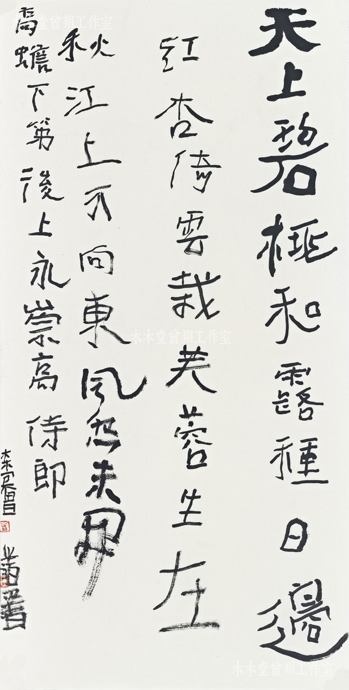 天上碧桃和露種日邊
紅杏倚雲栽芙蓉生在
秋江上不向東風怨未開
高蟾下第後上永崇高侍郎
木木堂曾翔工作室